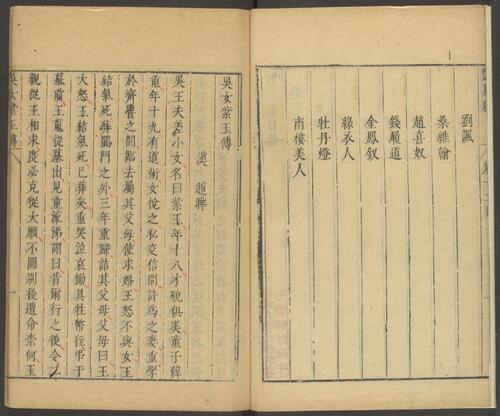 劉諷
桑維翰
趙喜奴
錢履道
金鳳釵
綠衣人
牡丹燈
南樓美人
吳女紫玉傳
漢 趙曄
吳王夫差小女名曰紫玉年十八才貌俱美童子韓
重年十九有道術女悅之私交信問許為之妻重學
於齊魯之間臨去屬其父母使求婚王怒不與女玉
結氣死葬閶門之外三年重歸詰其父母父母曰王
大怒玉結氣死已葬矣重哭泣哀慟具牲幣往弔于
墓前玉魂從墓出見重流涕謂曰昔爾行之後令二
親從王相求度必克從大願不圖別後遭命柰何玉
吳女紫玉傳